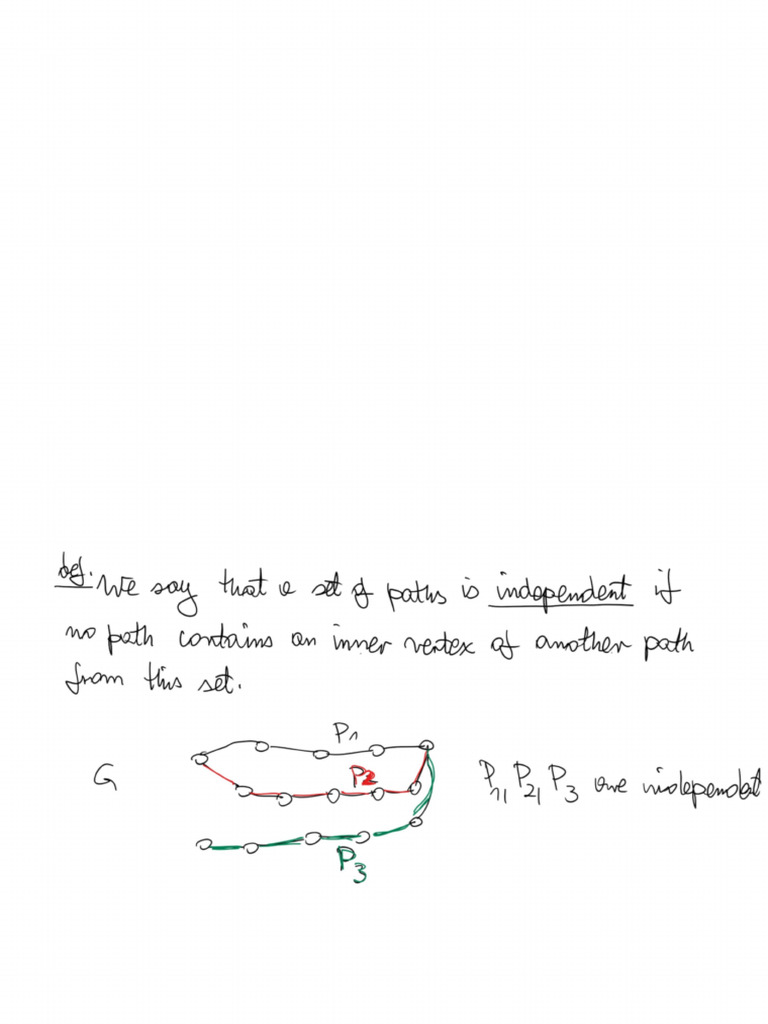 Def. We say that a set of paths is independent if
no path contains an inner vertex of another path
from this set.
P1
G P2 P1, P2, P3 are independent
P3